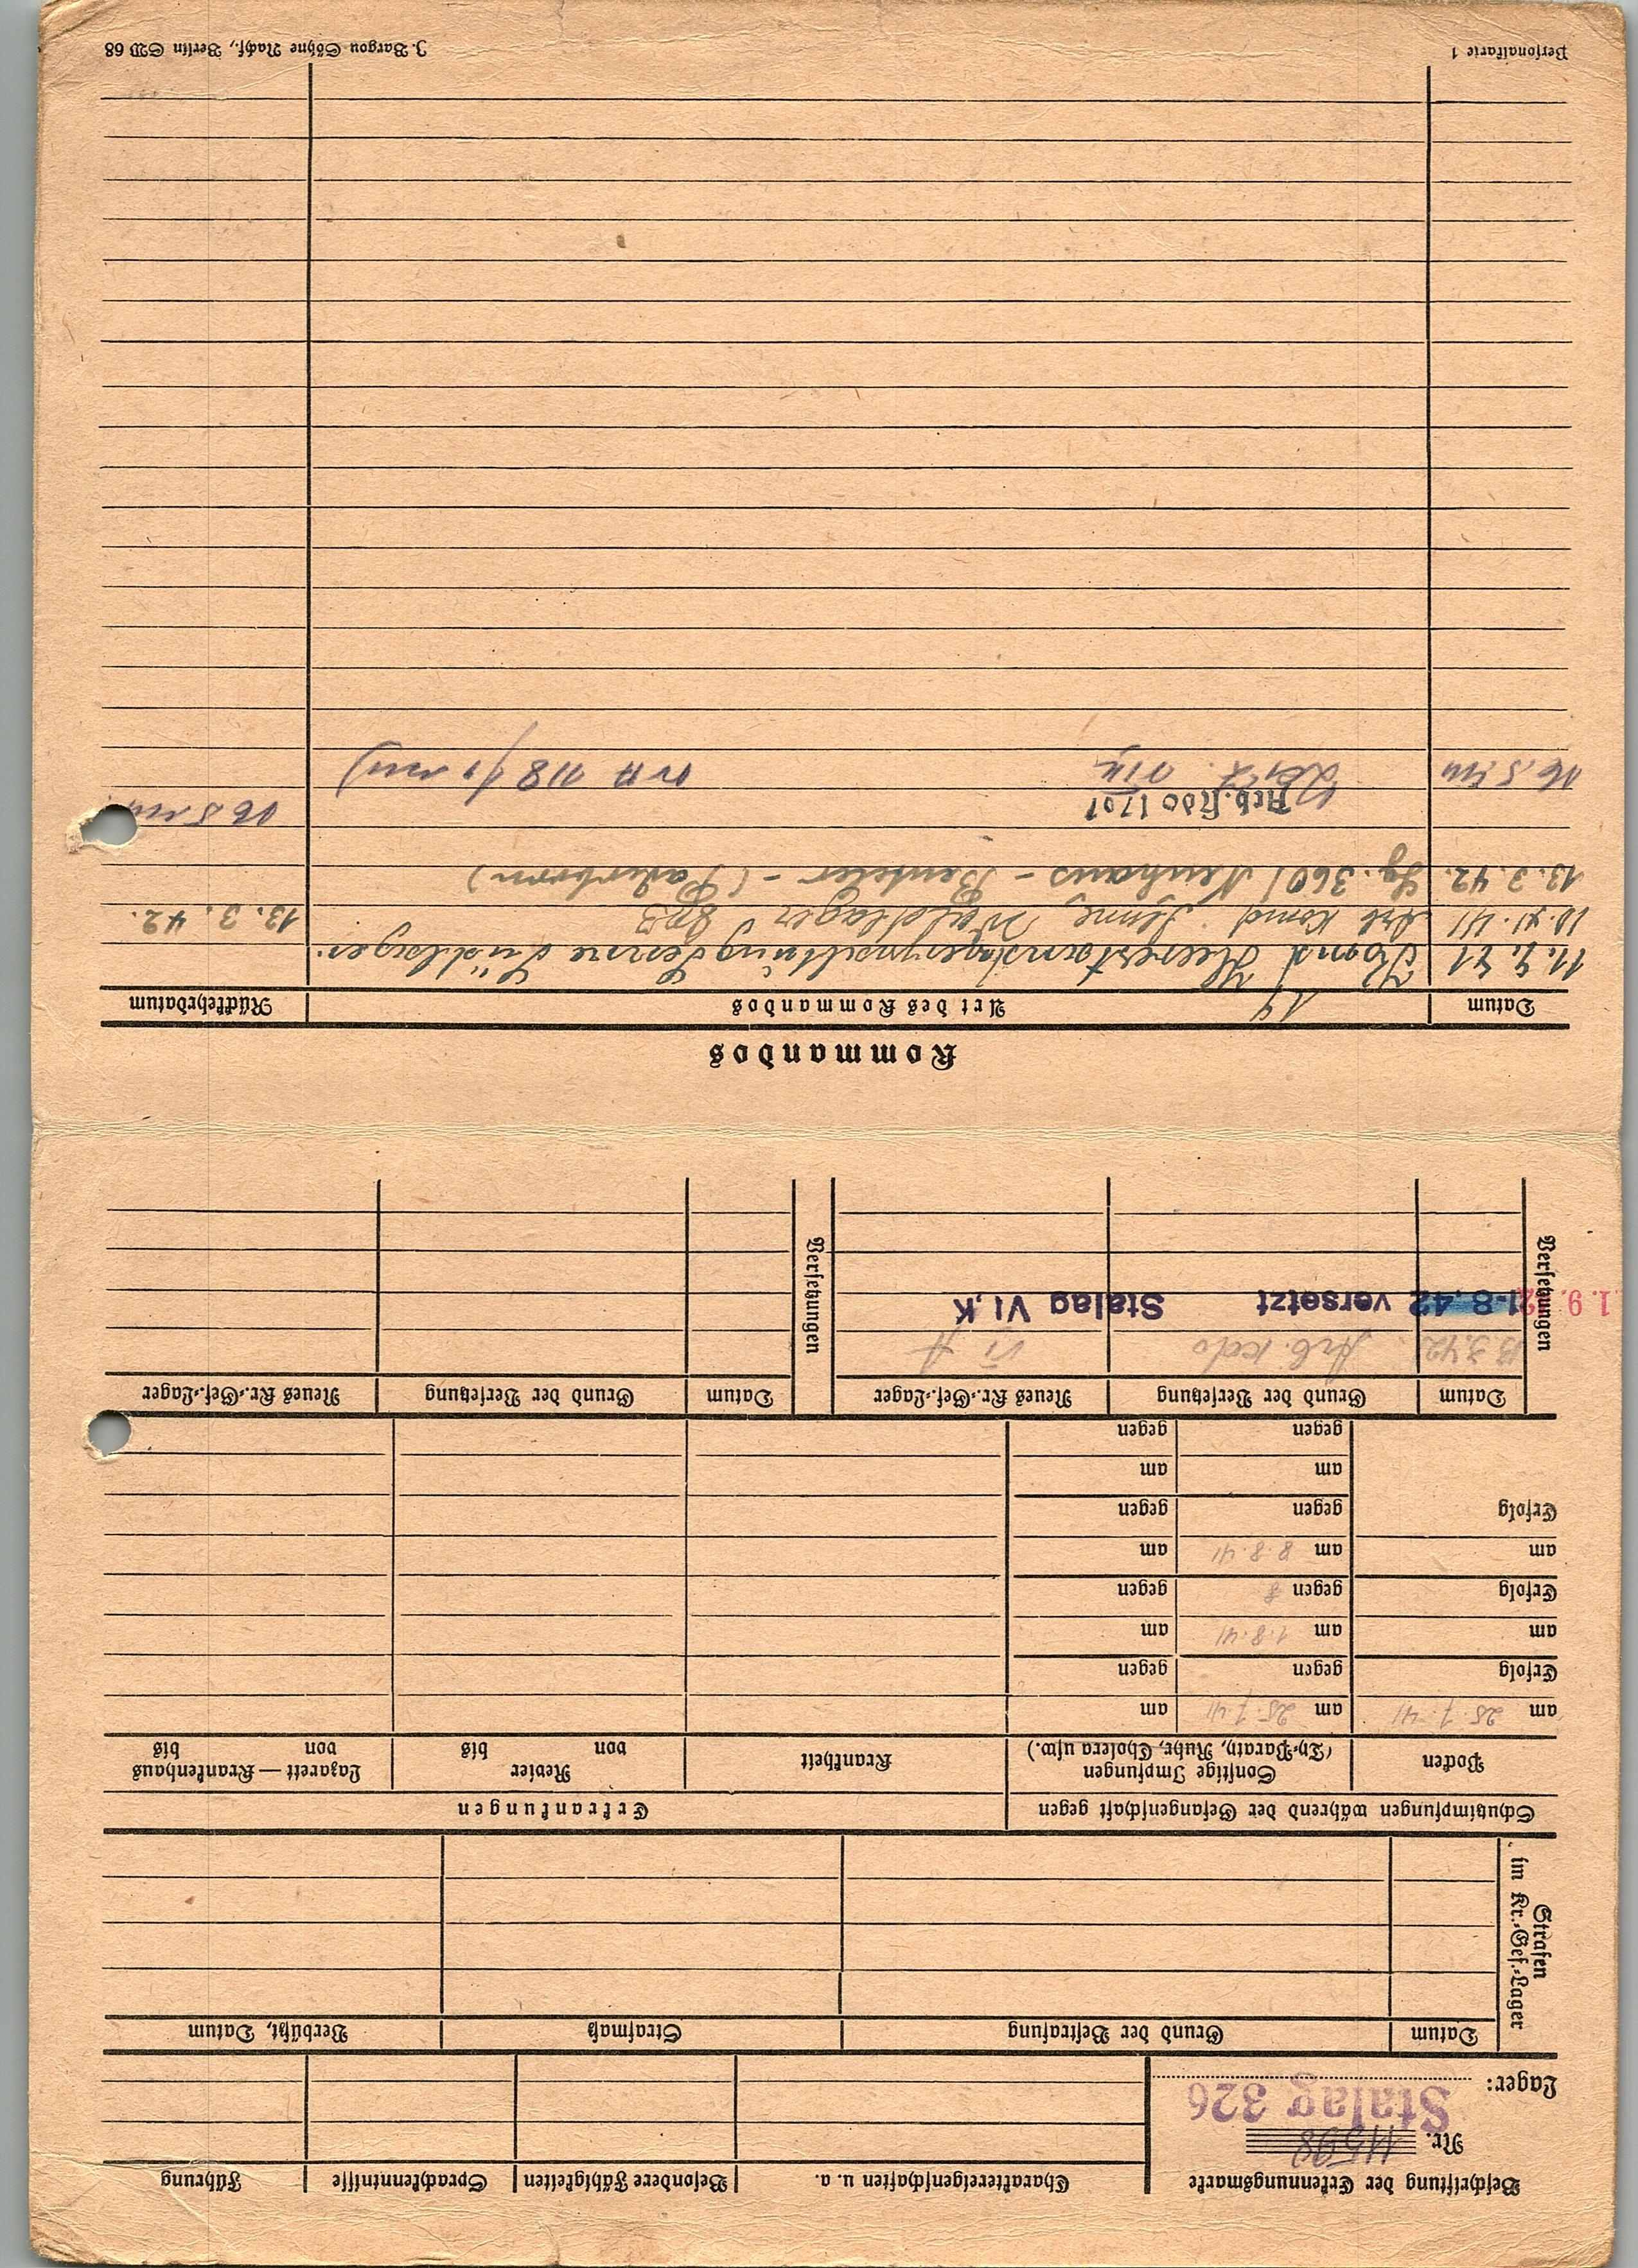 Beschriftung der Erkennungsmarke
Nr. 11598
Lager: Stalag 326
Charaktereigenschaften u. a.
Besondere Fähigkeiten
Sprachkenntnisse
Führung
Strafen
im Kr.-Gef.-Lager
Datum
Grund der Bestrafung
Strafmaß
Verbüßt, Datum
Schutzimpfungen während der Gefangenschaft gegen
Erkrankungen
Pocken
Sonstige Impfungen
(Ty.-Paraty, Ruhr, Cholera usw.)
Krankheit
Revier
von bis
Lazarett — Krankenhaus
von bis
am 25.7.41
am 25.7.41
am
Erfolg
gegen
gegen
am
am 1.8.41
am
Erfolg
gegen
gegen
am
am 8.8.41
am
Erfolg
gegen
gegen
am
am
gegen
gegen
Versetzungen
Datum
Grund der Versetzung
Neues Kr.-Gef.-Lager
Versetzungen
Datum
Grund der Versetzung
Neues Kr.-Gef.-Lager
13.3.42 Arb. Kdo VI A
1. 9.
1-8.42 versetzt Stalag VI,K
Kommandos
Datum
Art des Kommandos
Rückkehrdatum
Senne Südlager
10.XI.41 Arb Komd Senne Waldlager 13. 3. 42.
13.3.42. 360 Neuhaus - Benteler - (Paderborn)
Arb.Kdo 1707
Personalkarte 1
J. Bargou Söhne Nachf., Berlin SW 68